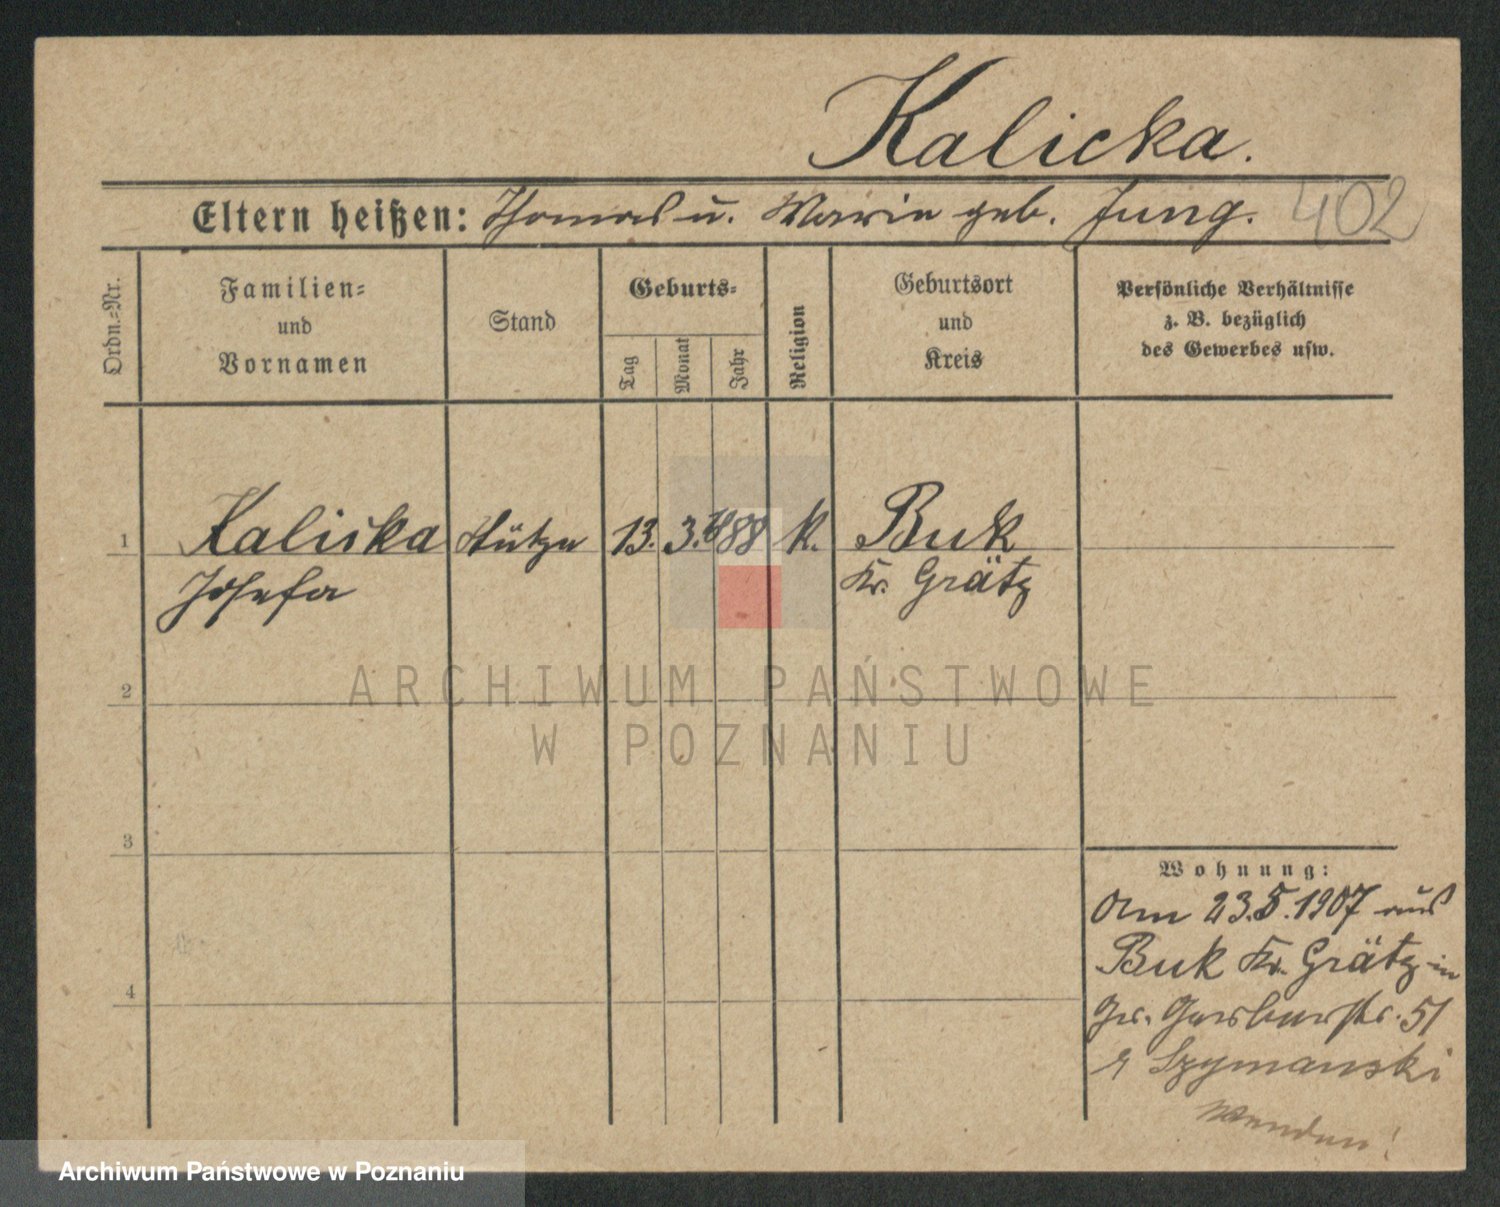 Kalicka.
Eltern heißen: Thomas u. Marie geb. Jung. 402
Ordn.-Nr.
Familien-
und
Vornamen
Stand
Geburts-
Tag
Monat
Jahr
Religion
Geburtsort
und
Kreis
Persönliche Verhältnisse
z. B. bezüglich
des Gewerbes usw.
1 Kalicka Stütze 13. 3. 88 k. Buk
Josefa Kr. Grätz
2
ARCHIWUM PAŃSTWOWE
W POZNANIU
3
Wohnung:
Am 23.5.1907 aus
Buk Kr. Grätz in
Gr. Gerberstr. 51
4
Szymanski
Wenden!
Archiwum Państwowe w Poznaniu